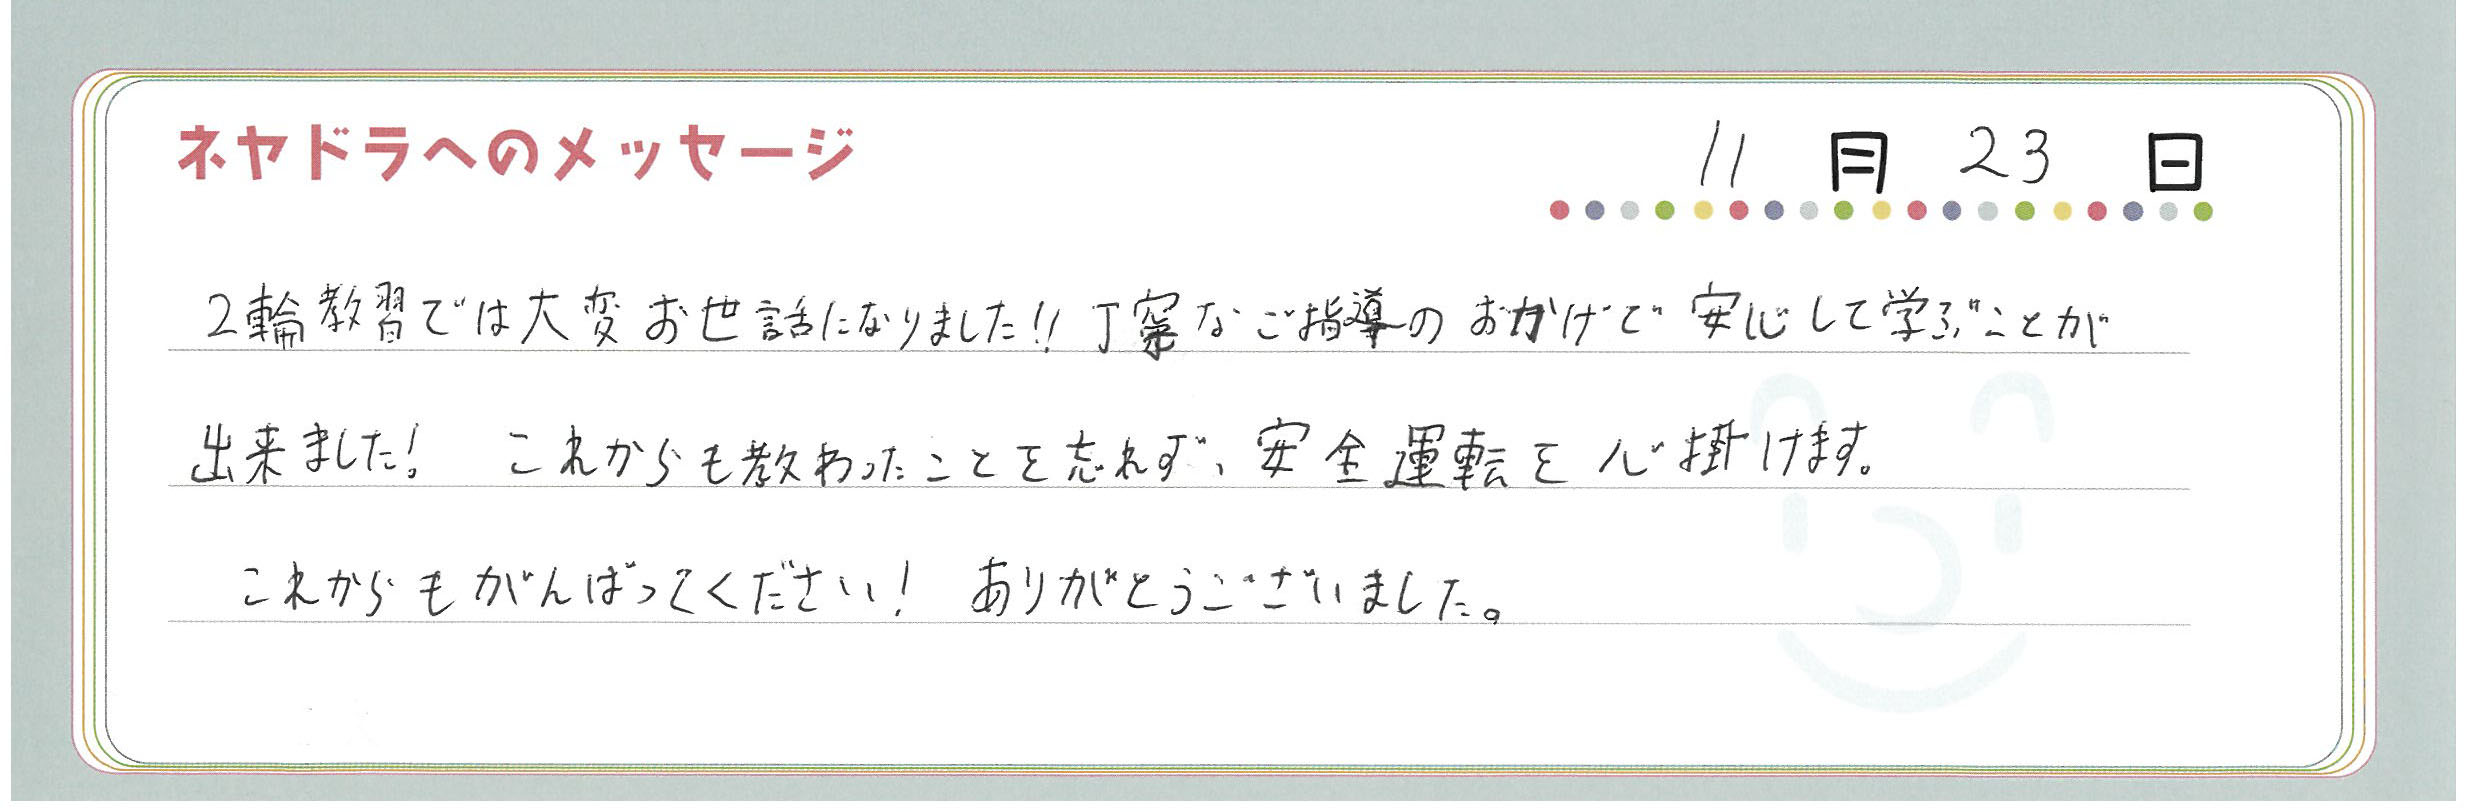 ネヤドラへのメッセージ
11月23日
2輪教習では大変お世話になりました!!丁寧なご指導のおかげで安心して学ぶことが
出来ました! これからも教わったことを忘れず、安全運転を心掛けます。
これからもがんばってください! ありがとうございました。